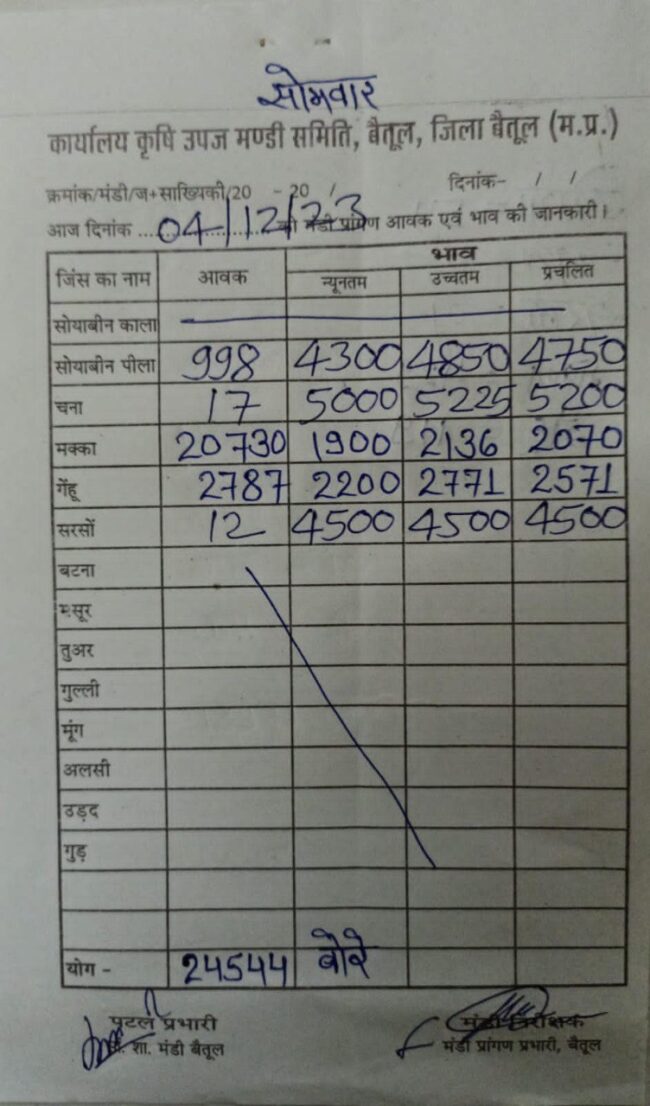 सोमवार
कार्यालय कृषि उपज मण्डी समिति, बैतूल, जिला बैतूल (म.प्र.)
क्रमांक/मंडी/ज+साख्यिकी/20 - 20 / दिनांक- / /
आज दिनांक ... 04/12/23 को मंडी प्रांगण आवक एवं भाव की जानकारी।
जिंस का नाम आवक भाव
न्यूनतम उच्चतम प्रचलित
सोयाबीन काला
सोयाबीन पीला 998 4300 4850 4750
चना 17 5000 5225 5200
मक्का 20730 1900 2136 2070
गेंहू 2787 2200 2771 2571
सरसों 12 4500 4500 4500
बटना
मसूर
तुअर
गुल्ली
मूंग
अलसी
उड़द
गुड़
योग - 24544 बोरे
पटल प्रभारी मंडी निरीक्षक
शा. मंडी बैतूल मंडी प्रांगण प्रभारी, बैतूल